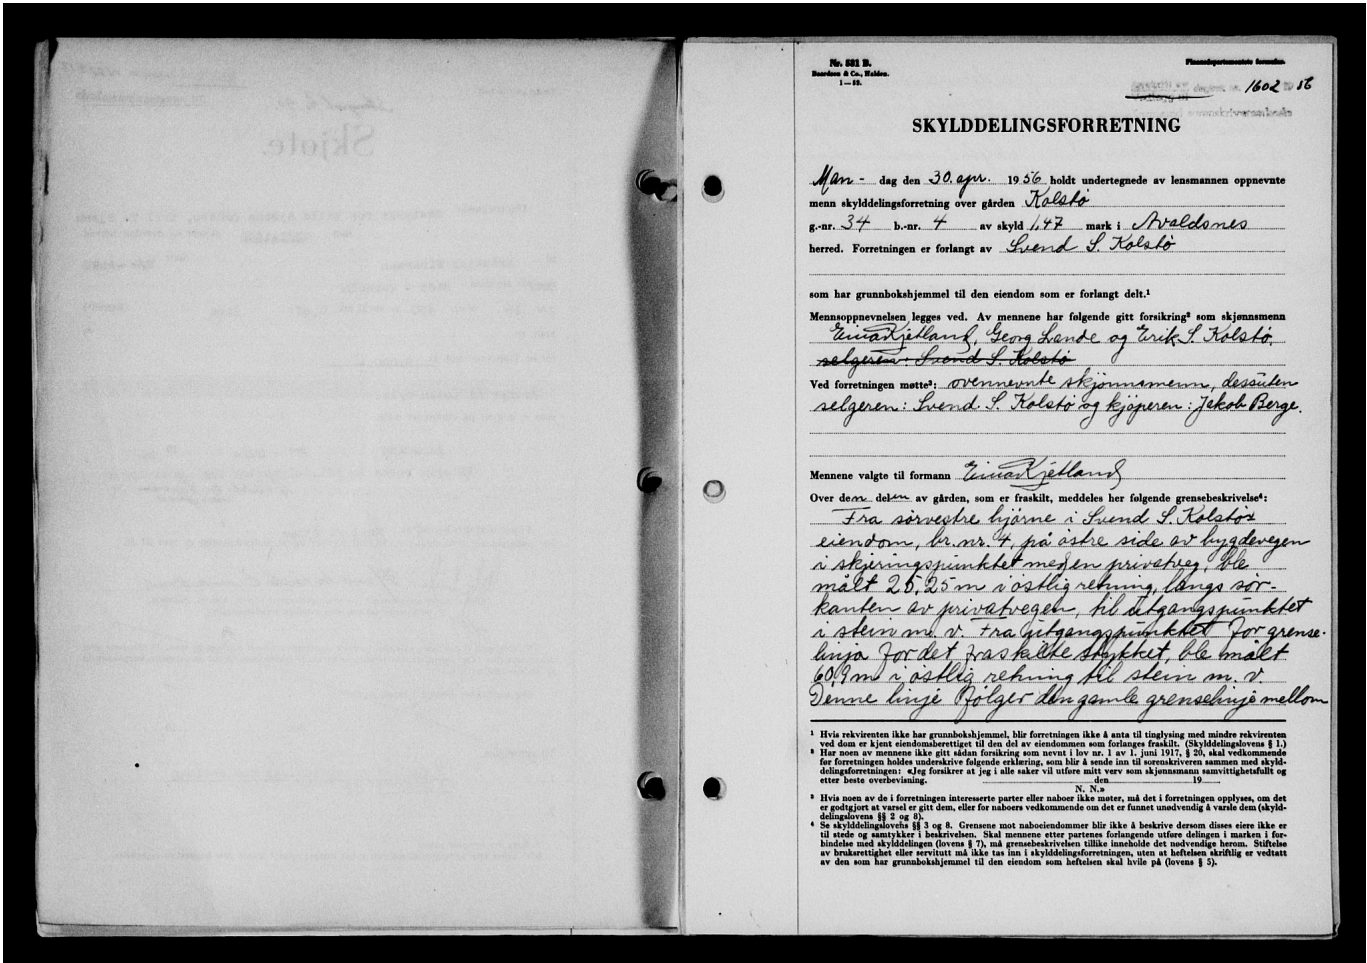 Skjøte.
Nr. 531 B.
Baardsen & Co., Halden.
1—55.
Finansdepartementets formular.
1602 56
SKYLDDELINGSFORRETNING
Man- dag den 30. apr. 1956 holdt undertegnede av lensmannen oppnevnte
menn skylddelingsforretning over gården Kolstø
g.-nr. 34 b.-nr. 4 av skyld 1,47 mark i Avaldsnes
herred. Forretningen er forlangt av Svend S. Kolstø
som har grunnbokshjemmel til den eiendom som er forlangt delt.¹
Mennsoppnevnelsen legges ved. Av mennene har følgende gitt forsikring² som skjønnsmenn
Einar Kjetland, Georg Lande og Erik S. Kolstø.
selgeren: Svend S. Kolstø
Ved forretningen møtte³: ovennevnte skjønnsmenn, dessuten
selgeren: Svend S. Kolstø og kjøperen: Jakob Berge.
Mennene valgte til formann Einar Kjetland
Over den delen av gården, som er fraskilt, meddeles her følgende grensebeskrivelse⁴:
Fra sørvestre hjørne i Svend S. Kolstøs
eiendom, br. nr. 4, på østre side av bygdevegen
i skjeringspunktet med en privatveg, ble
målt 25,25 m i østlig retning, langs sør-
kanten av privatvegen, til utgangspunktet
i stein m. v. Fra utgangspunktet for grense-
linja for det fraskilte stykket, ble målt
60,9 m i østlig retning til stein m. v.
Denne linje følger den gamle grenselinje mellom
¹ Hvis rekvirenten ikke har grunnbokshjemmel, blir forretningen ikke å anta til tinglysing med mindre rekvirenten
ved dom er kjent eiendomsberettiget til den del av eiendommen som forlanges fraskilt. (Skylddelingslovens § 1.)
² Har noen av mennene ikke gitt sådan forsikring som nevnt i lov nr. 1 av 1. juni 1917, § 20, skal vedkommende
før forretningen holdes underskrive følgende erklæring, som blir å sende inn til sorenskriveren sammen med skyld-
delingsforretningen: «Jeg forsikrer at jeg i alle saker vil utføre mitt verv som skjønnsmann samvittighetsfullt og
etter beste overbevisning. den 19
N. N.»
³ Hvis noen av de i forretningen interesserte parter eller naboer ikke møter, må det i forretningen opplyses, om det
er godtgjort at varsel er gitt dem, eller for naboers vedkommende om det er funnet unødvendig å varsle dem (skyld-
delingslovens §§ 2 og 8).
⁴ Se skylddelingslovens §§ 3 og 8. Grensene mot naboeiendommer blir ikke å beskrive dersom disses eiere ikke er
til stede og samtykker i beskrivelsen. Skal mennene etter partenes forlangende utføre delingen i marken i for-
bindelse med skylddelingen (lovens § 7), må grensebeskrivelsen tillike inneholde det nødvendige herom. Stiftelse
av bruksrettighet eller servitutt må ikke tas inn i skylddelingsforretningen, uten at heftelsen skriftlig er vedtatt
av den som har grunnbokshjemmel til den eiendom som heftelsen skal hvile på (lovens § 5).